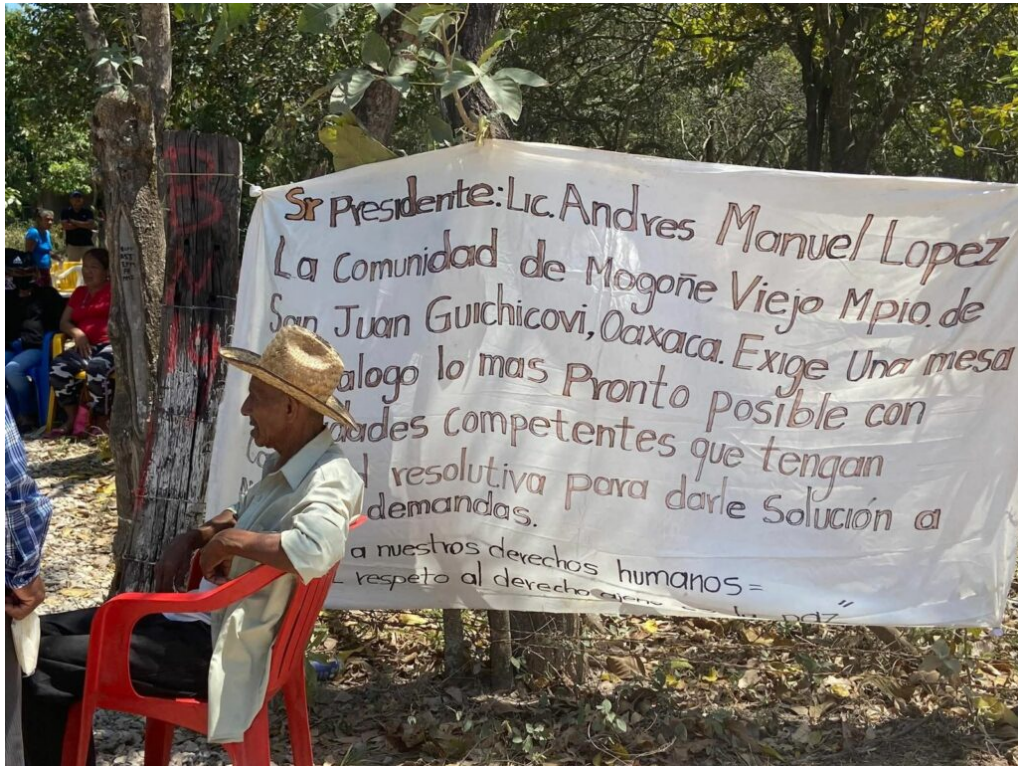 Sr Presidente: Lic. Andres Manuel Lopez
La Comunidad de Mogoñe Viejo Mpio. de
San Juan Guichicovi, Oaxaca. Exige Una mesa
alogo lo mas Pronto posible con
dades competentes que tengan
resolutiva para darle Solución a
demandas.
a nuestros derechos humanos=
respeto al derecho ajeno paz"